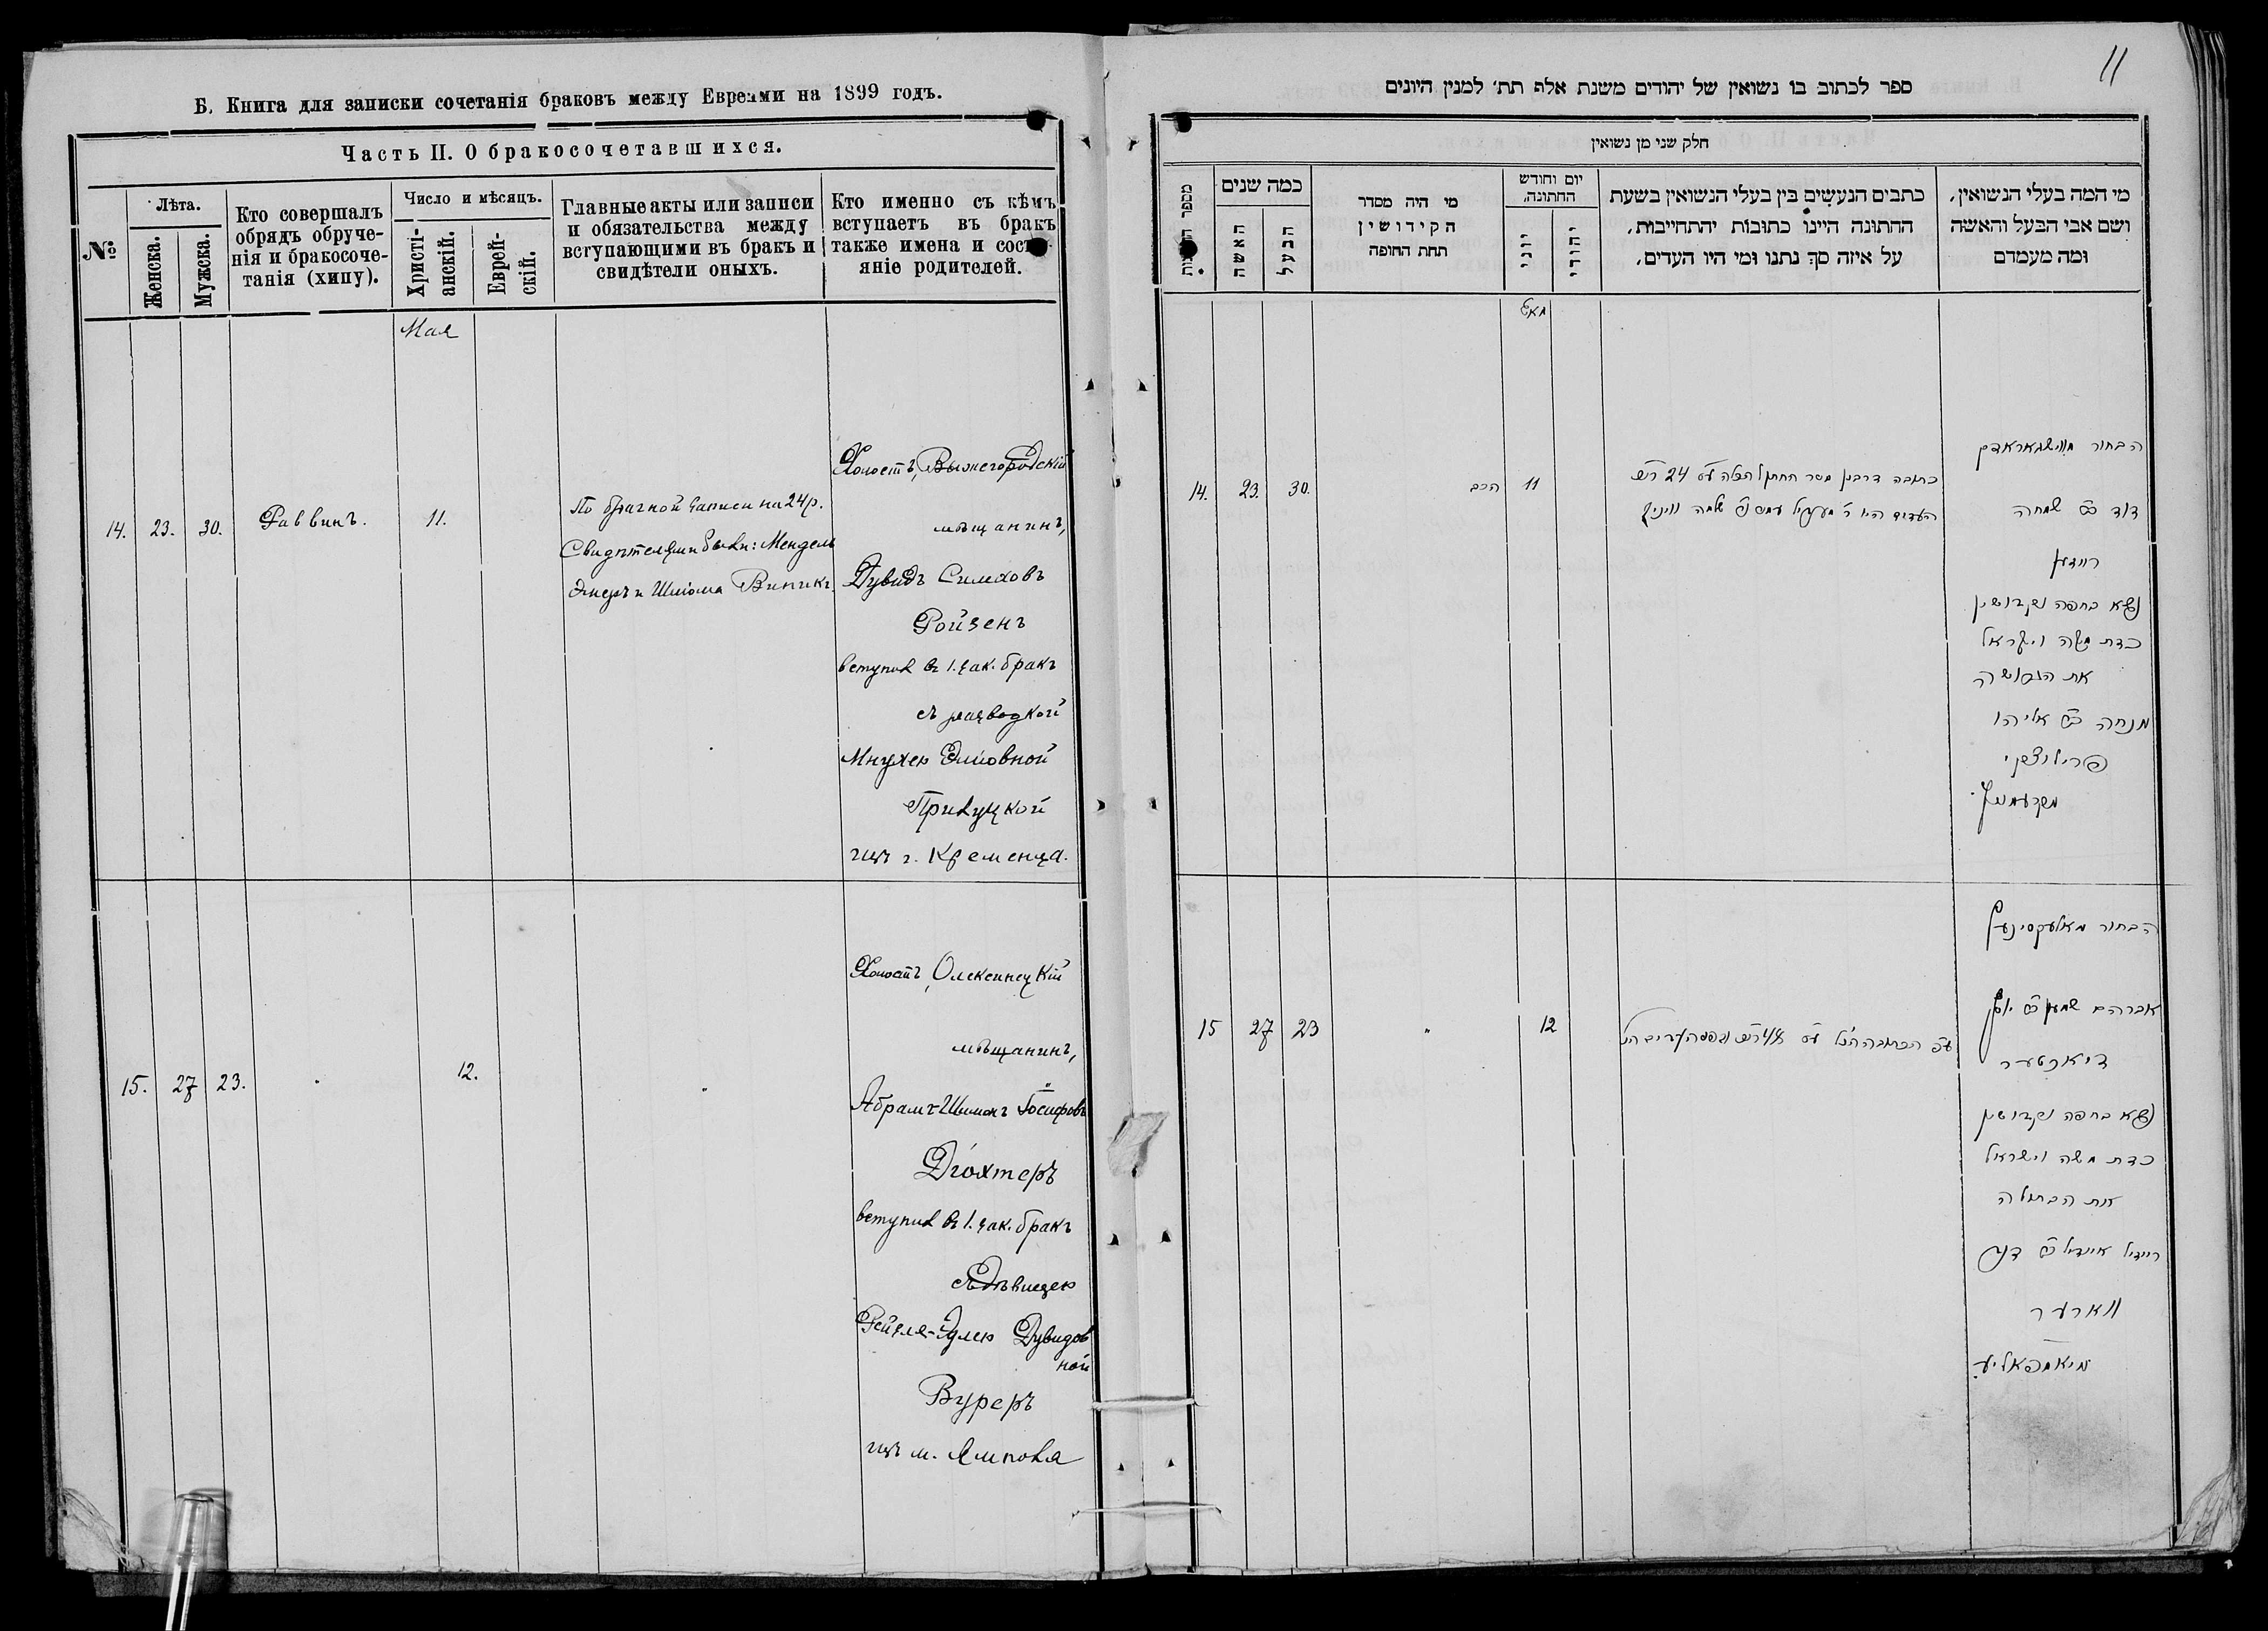 Б. Книга для записки сочетанія браковъ между Евреями на 1899 годъ.
Часть II. О бракосочетавшихся.
№
Лѣта.
Женска.
Мужска.
Кто совершалъ
обрядъ обруче-
нія и бракосоче-
танія (хипу).
Число и мѣсяцъ.
Христі-
анскій.
Еврей-
скій.
Главные акты или записи
и обязательства между
вступающими въ бракъ и
свидѣтели оныхъ.
Кто именно съ кѣмъ
вступаетъ въ бракъ
также имена и
яніе родителей.
Мая
14. 23. 30. Раввинъ. 11.
По брачной записи на 24 р.
Свидѣтелями были: Мендель
и Шлома Виникъ.
Холостъ, Вышегородскій
мѣщанинъ,
Дувидъ Симховъ
Ройзенъ
вступил въ 1. зак. бракъ
съ разводкой
Мнухею Эліовной
Прилуцкой
изъ г. Кременца.
15. 27 23. " 12. "
Холостъ, Олексинецкій
мѣщанинъ,
Абрамъ-Шимонъ Іосифовъ
Діохтеръ
вступил въ 1. зак. бракъ
съ дѣвицею
Рейзля-Эдлею Дувидов
ной
Вуреръ
изъ м. Ямполя
11
ספר לכתוב בו נשואין של יהודים משנת אלף תת׳ למנין היונים
חלק שני מן נשואין
מספר
כמה שנים
האשה
הבעל
מי היה מסדר
הקידושין
תחת החופה
יום וחודש
החתונה.
יווני
יהודי
כתבים הנעשים בין בעלי הנשואין בשעת
החתונה היינו כתובות יהתחייבות,
על איזה סך נתנו ומי היו העדים,
מי המה בעלי הנשואין,
ושם אבי הבעל והאשה
ומה מעמדם
מאי
14. 23. 30. הרב 11
כתובה דרבנן מסר החתן להכלה על 24
העדים היו שלמה וויניק
הבחור
דוד שמחה
רויזען
נשא בחפה וקדושין
כדת משה וישראל
את הגרושה
מנחה אליהו
פרילוצקי
מקרעמניץ
15 27 23 " 12
הבחור מאלעקסיניץ
אברהם שמעון יוסף
דיאכטער
נשא בחפה וקדושין
כדת משה וישראל
את הבתולה
רייזיל איידיל דוד
ווארער
מיאמפאליע